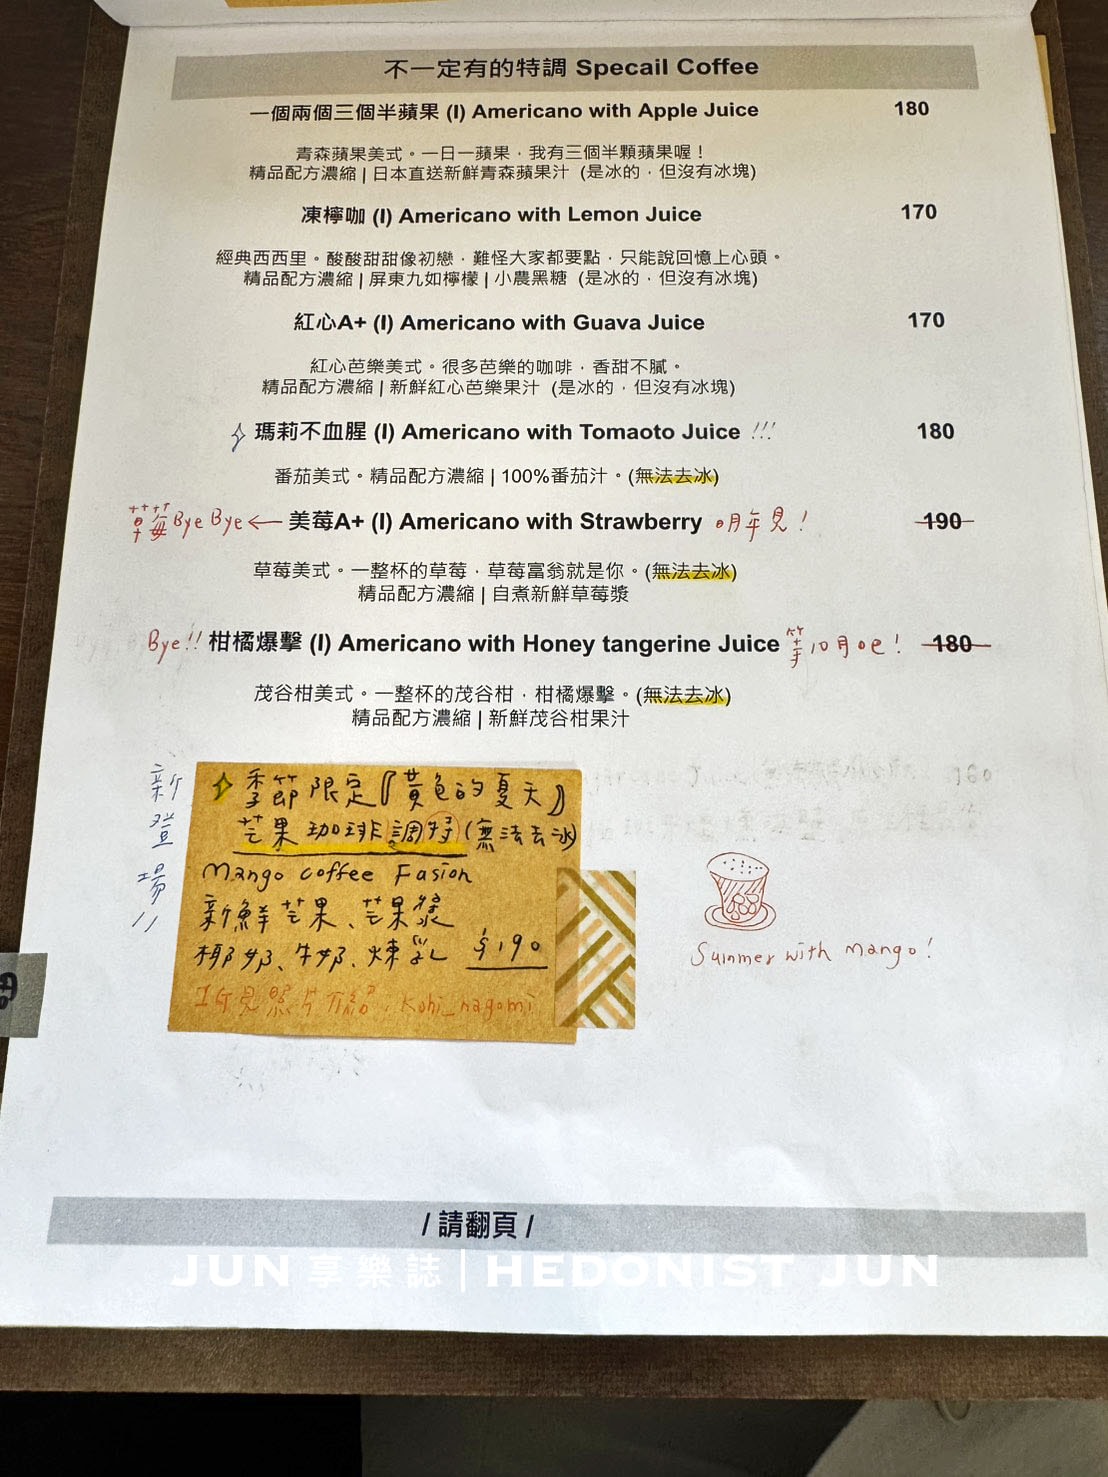 不一定有的特調 Specail Coffee
一個兩個三個半蘋果 (I) Americano with Apple Juice 180
青森蘋果美式。一日一蘋果，我有三個半顆蘋果喔！
精品配方濃縮 | 日本直送新鮮青森蘋果汁 (是冰的，但沒有冰塊)
凍檸咖 (I) Americano with Lemon Juice 170
經典西西里。酸酸甜甜像初戀，難怪大家都要點，只能說回憶上心頭。
精品配方濃縮 | 屏東九如檸檬 | 小農黑糖 (是冰的，但沒有冰塊)
紅心A+ (I) Americano with Guava Juice 170
紅心芭樂美式。很多芭樂的咖啡，香甜不膩。
精品配方濃縮 | 新鮮紅心芭樂果汁 (是冰的，但沒有冰塊)
瑪莉不血腥 (I) Americano with Tomaoto Juice !!! 180
番茄美式。精品配方濃縮 | 100%番茄汁。(無法去冰)
草莓 Bye Bye ← 美莓A+ (I) Americano with Strawberry 明年見！ 190
草莓美式。一整杯的草莓，草莓富翁就是你。(無法去冰)
精品配方濃縮 | 自煮新鮮草莓漿
Bye!! 柑橘爆擊 (I) Americano with Honey tangerine Juice 等10月吧！ 180
茂谷柑美式。一整杯的茂谷柑，柑橘爆擊。(無法去冰)
精品配方濃縮 | 新鮮茂谷柑果汁
新登場!!
季節限定『黃色的夏天』
芒果咖啡調特(無法去冰)
Mango coffee Fusion
新鮮芒果、芒果漿
椰奶、牛奶、煉乳 $190
照片 kohi_nagomi
Summer with mango!
/ 請翻頁 /
JUN 享樂誌 | HEDONIST JUN